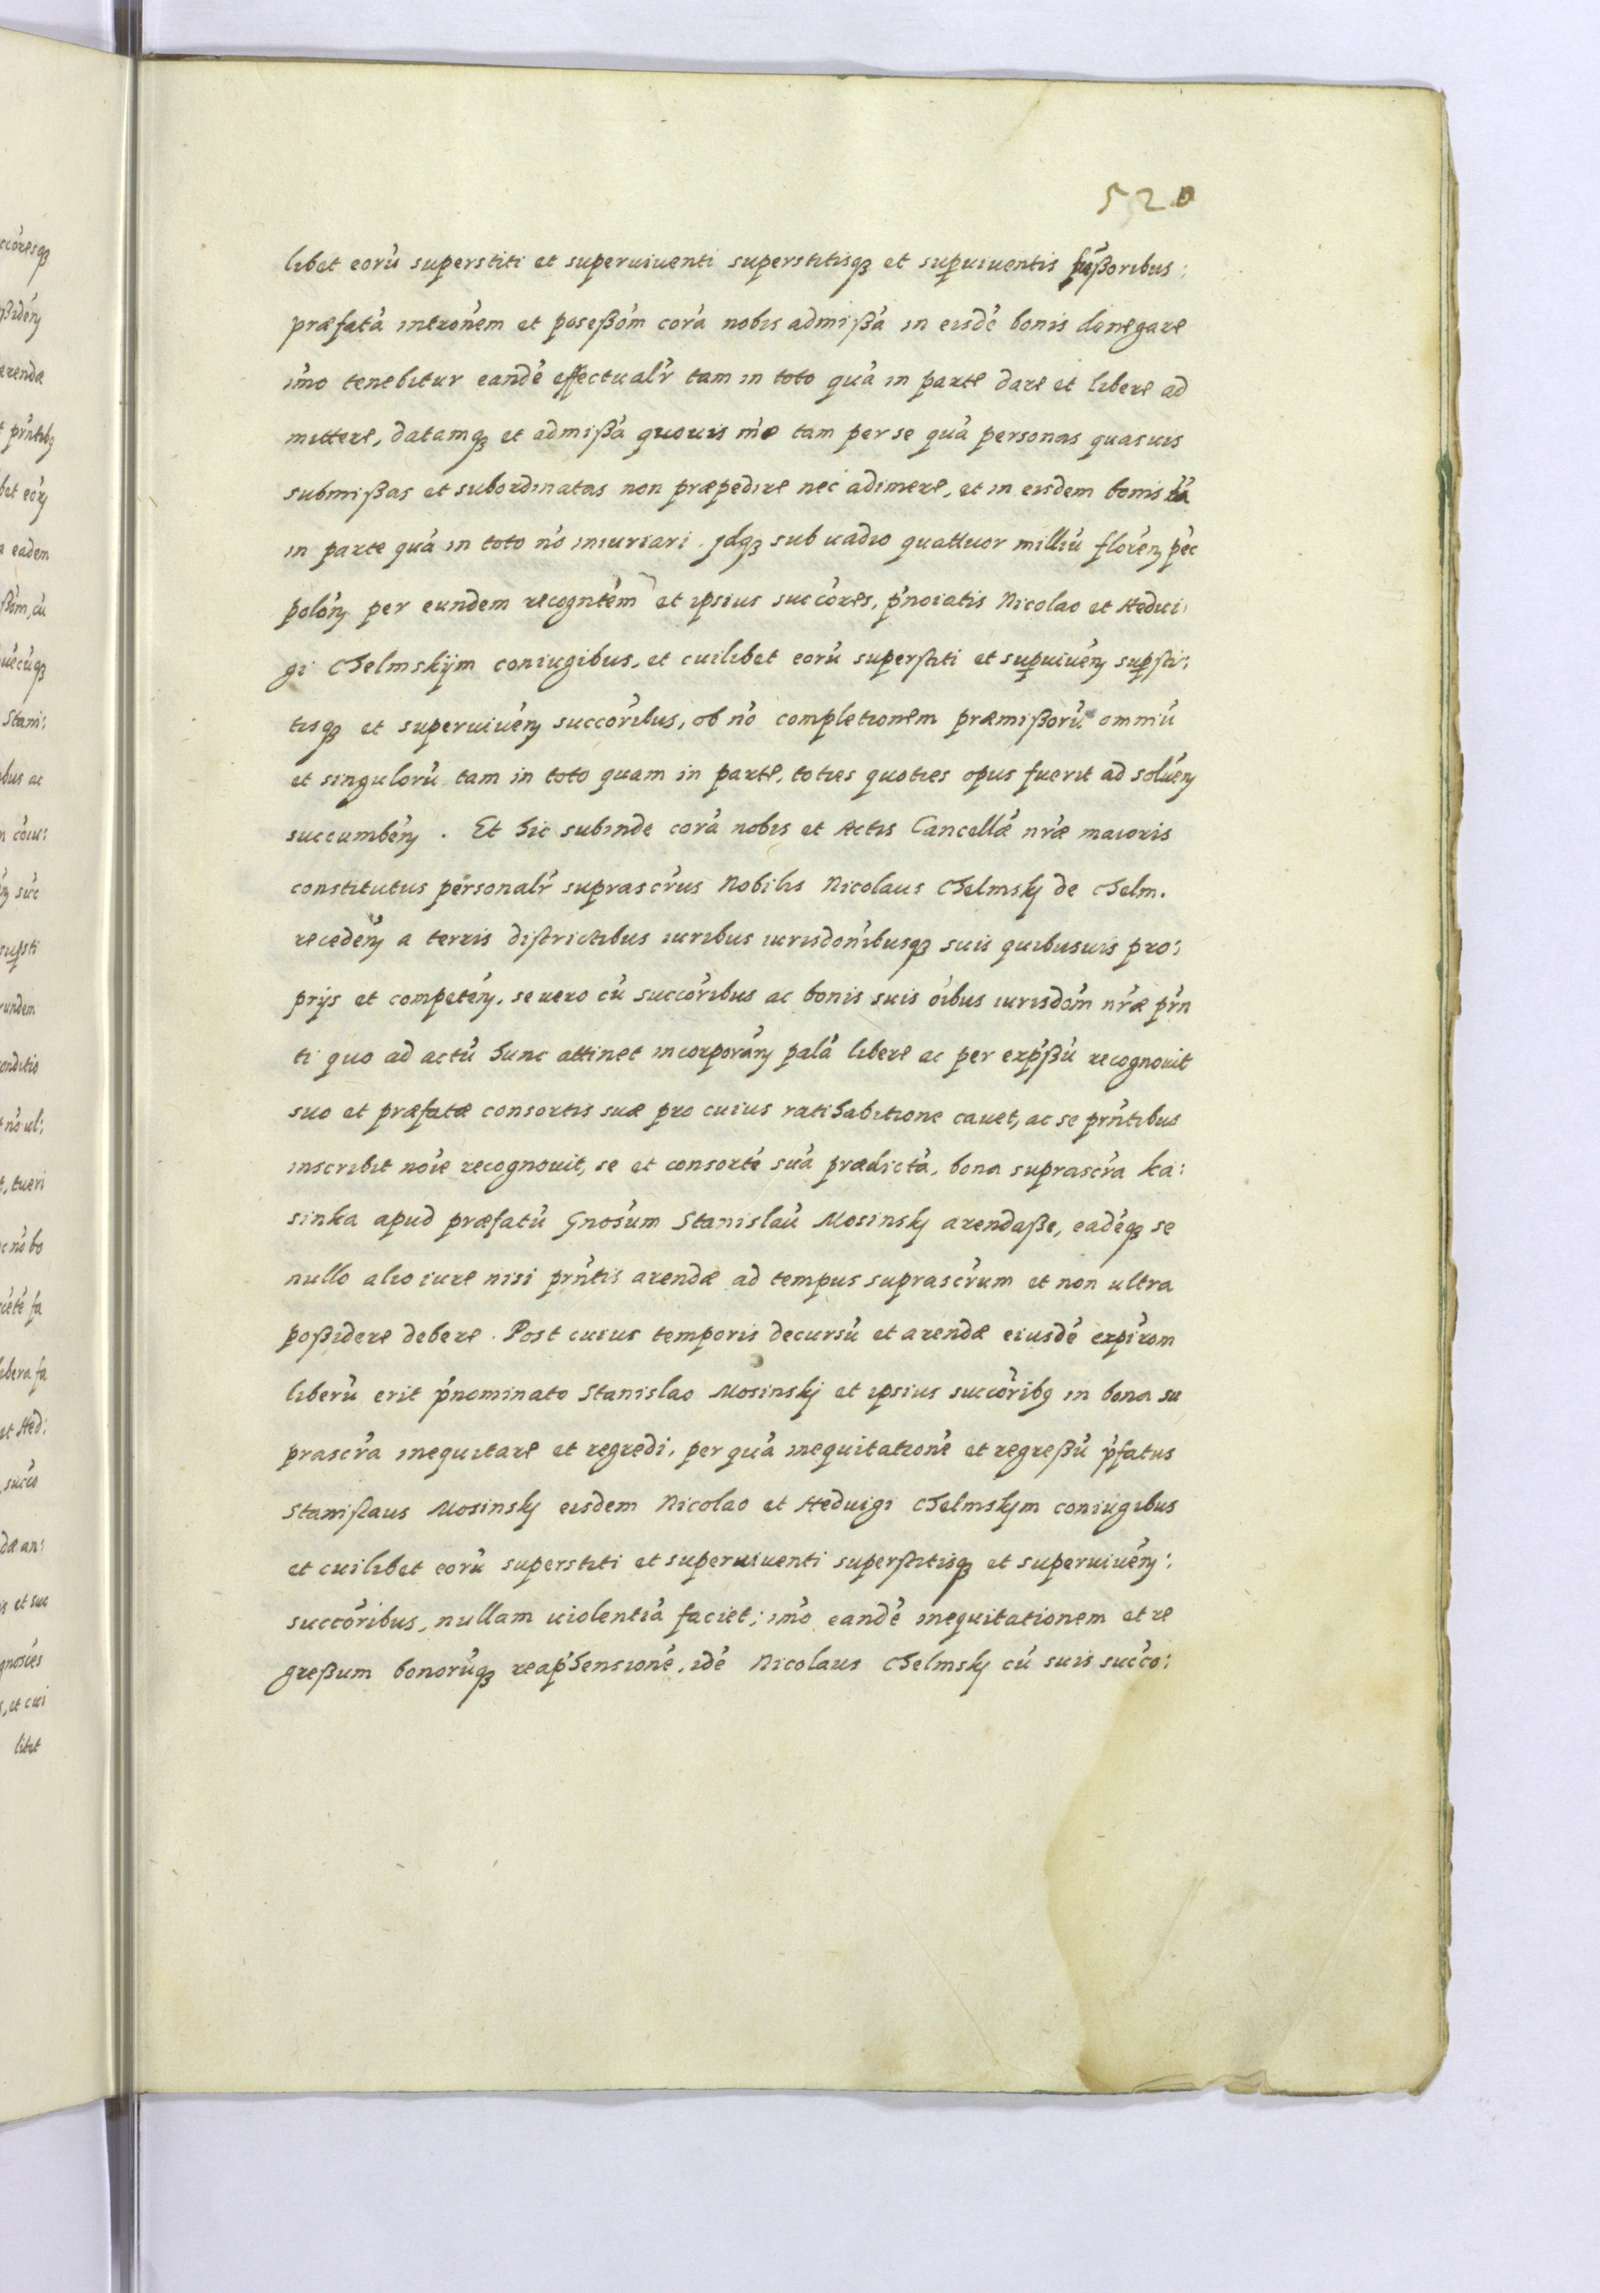 520
libet eorū superstiti et superuiuenti superstitisq3 et supuiuentis ßoribus:
præfatā intrōnem et poseßōm corā nobis admißā in eisdē bonis denegare
īmo tenebitur eandē effectualr̄ tam in toto quā in parte dare et libere ad
mittere, datamq3 et admißā quouis mō tam per se quā personas quasuis
submißas et subordinatas non præpedire nec adimere, et in eisdem bonis tā
in parte quā in toto nō iniuriari. Jdq3 sub uadio quattuor milliū florēn pēc
polōn per eundem recogntēm et ipsius succōres, p̄noiatis Nicolao et Hedui:
gi Chelmskijm coniugibus, et cuilibet eorū superstiti et supuiuēn supsti:
tisq3 et superuiuēn succōribus, ob nō completionem præmißorū omniū
et singulorū tam in toto quam in parte, toties quoties opus fuerit ad soluēn
succumbēn. Et hic subinde corā nobis et Actis Cancellæ nr̄æ maioris
constitutus personalr̄ suprascr̄us Nobilis Nicolaus Chelmskj de Chelm.
recedēn a terris districtibus iuribus iurisdonībusq3 suis quibusuis pro:
prijs et competēn, se uero cū succōribus ac bonis suis ōibus iurisdōm nr̄æ pr̄n
ti quo ad actū hunc attinet incorporān palā libere ac per exp̄ßū recognouit
suo et præfatæ consortis suæ pro cuius ratihabitione cauet, ac se pr̄ntibus
inscribit nōie recognouit, se et consortē suā prædictā, bona suprascr̄a ka:
sinka apud præfatū Gnosūm Stanislaū Mosinskj arendaße, eadēq3 se
nullo alio iure nisi pr̄ntis arendæ ad tempus suprascr̄um et non ultra
poßidere debere. Post cuius temporis decursū et arendæ eiusdē expirōm
liberū erit p̄nominato Stanislao Mosinskj et ipsius succōrib9 in bona su
prascr̄a inequitare et regredi, per quā inequitationē et regreßū p̄fatus
Stanislaus Mosinskj eisdem Nicolao et Heduigi Chelmskjm coniugibus
et cuilibet eorū superstiti et superuiuenti superstitisq3 et superuiuēn:
succōribus, nullam uiolentiā faciet; īmo eandē inequitationem et re
greßum bonorūq3 reap̄hensionē, idē Nicolaus Chelmskj cū suis succo: